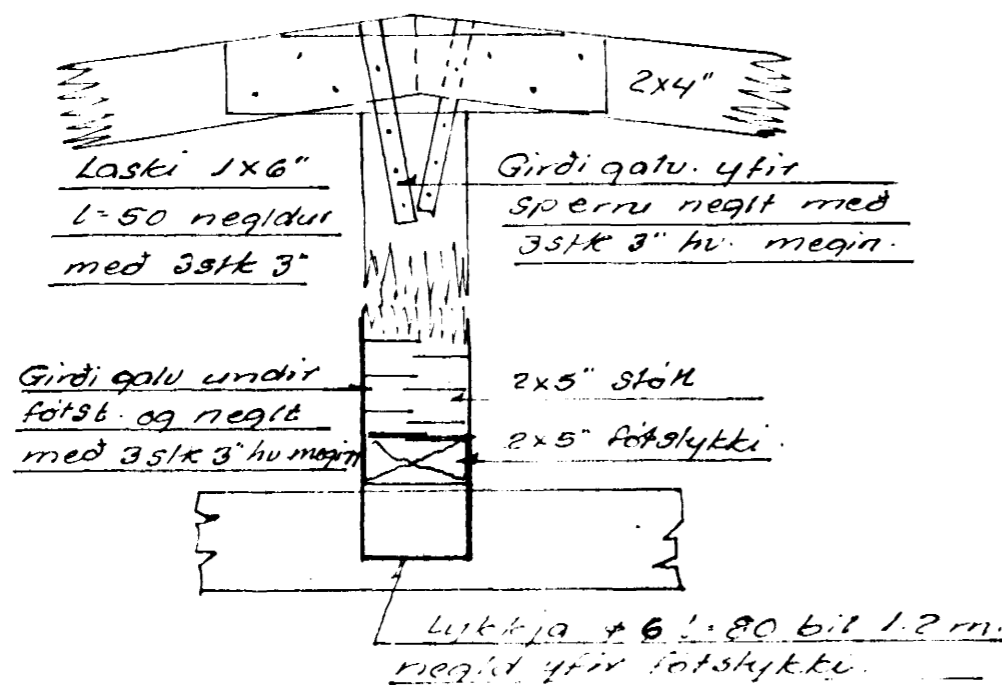 2x4"
Laski 1x6"
l=50 negldur
með 3stk 3"
Girði galv. yfir
sperru neglt með
3stk 3" hv. megin.
Girði galv undir
fótst. og neglt
með 3stk 3" hv megin
2x5" stóll
2x5" fótstykki.
Lykkja ø6 l=80 bil 1.2 m.
negld yfir fótstykki.